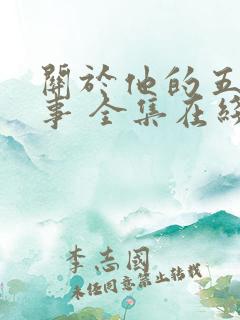 關於他的五
事 全集在綫
李志國
未經同意禁止轉載